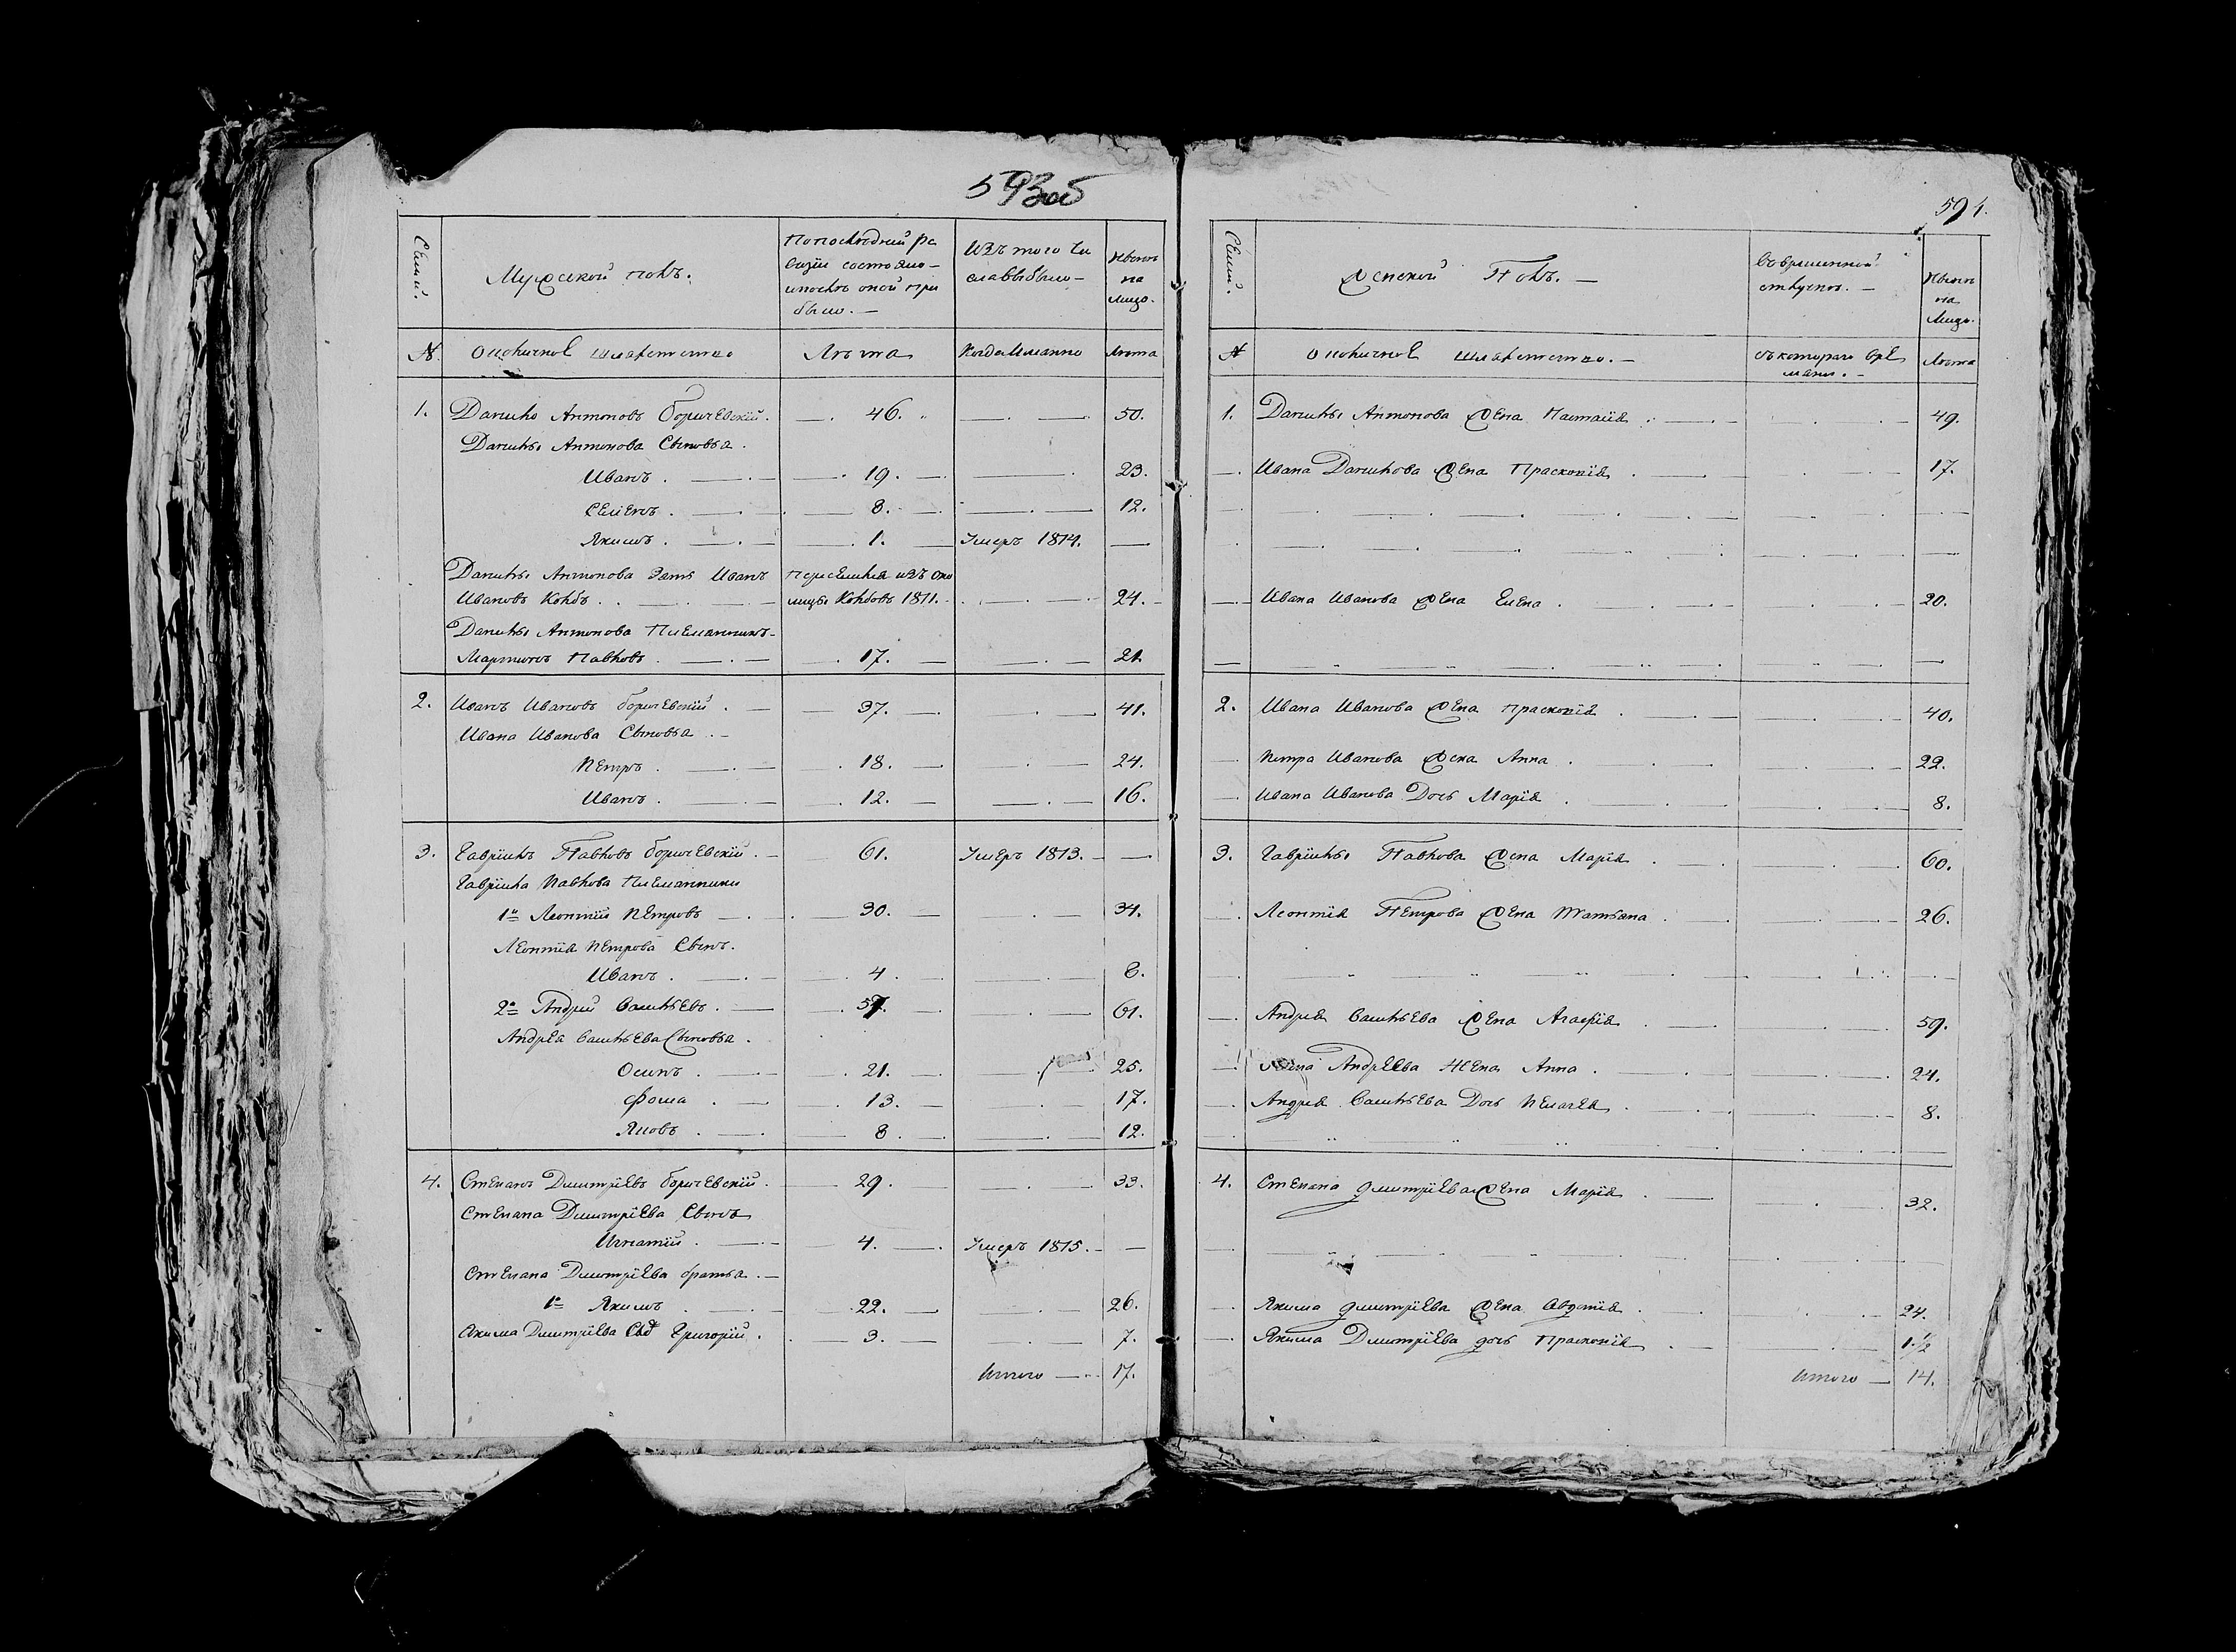 593об
Семьи.
Мужеской полъ.
По последней ре
визіи состояло
и послѣ оной при
было. —
Изъ того чи
сла выбыло —
Нынѣ
на
лицо.
№.
Околичное шляхетство
Лѣта
Когда именно
Лѣта
1. Данило Антоновъ Боричевскій. — 46. — 50.
Данилы Антонова Сыновья.
Иванъ. — 19. — 23.
Семенъ. — 8. — 12.
Якимъ. — 1. — Умеръ 1814. —
Данилы Антонова Зять Иванъ Переселился изъ око
Ивановъ Колбъ. лицы Колбовъ 1811. — 24.
Данилы Антонова Племянникъ —
Мартинъ Павловъ. — 17. — 21.
2. Иванъ Ивановъ Боричевскій. — 37. — 41.
Ивана Иванова Сыновья. —
Петръ. — 18. — 24.
Иванъ. — 12. — 16.
3. Гаврилъ Павловъ Боричевскій. — 61. Умеръ 1813. — —
Гаврила Павлова Племянники
1й Леонтій Петровъ — 30. — 34.
Леонтія Петрова Сынъ.
Иванъ. — 4. — 8.
2й Андрей Васильевъ. — 57. — 61.
Андрея Васильева Сыновья.
Осипъ. — 21. — 25.
Фома. — 13. — 17.
Яковъ. — 8. — 12.
4. Степанъ Дмитріевъ Боричевскій. — 29. — 33.
Степана Дмитріева Сынъ
Игнатій. — 4. — Умеръ 1815. — —
Степана Дмитріева братья. —
1й Якимъ. — 22. — 26.
Якима Дмитріева Сынъ Григорій. — 3. — 7.
Итого — 17.
594.
Семьи.
Женской Полъ. —
Во временной
отлучке. —
Нынѣ
на
лицо.
№
Околичное шляхетство. —
съ котораго вре
мени. —
Лѣта
1. Данилы Антонова Жена Настасія. — 49.
— Ивана Данилова Жена Прасковія. — 17.
— Ивана Иванова Жена Елена. — 20.
2. Ивана Иванова Жена Прасковія. — 40.
— Петра Иванова Жена Анна. — 22.
— Ивана Иванова Дочь Марія. — 8.
3. Гаврилы Павлова Жена Марія. — 60.
— Леонтія Петрова Жена Татьяна. — 26.
— Андрея Васильева Жена Агафія. — 59.
— Андреева Жена Анна. — 24.
— Андрея Васильева Дочь Пелагея. — 8.
4. Степана Дмитріева Жена Марія. — 32.
— Якима Дмитріева Жена Авдотія. — 24.
— Якима Дмитріева дочь Прасковія. — 1 1/2
Итого — 14.